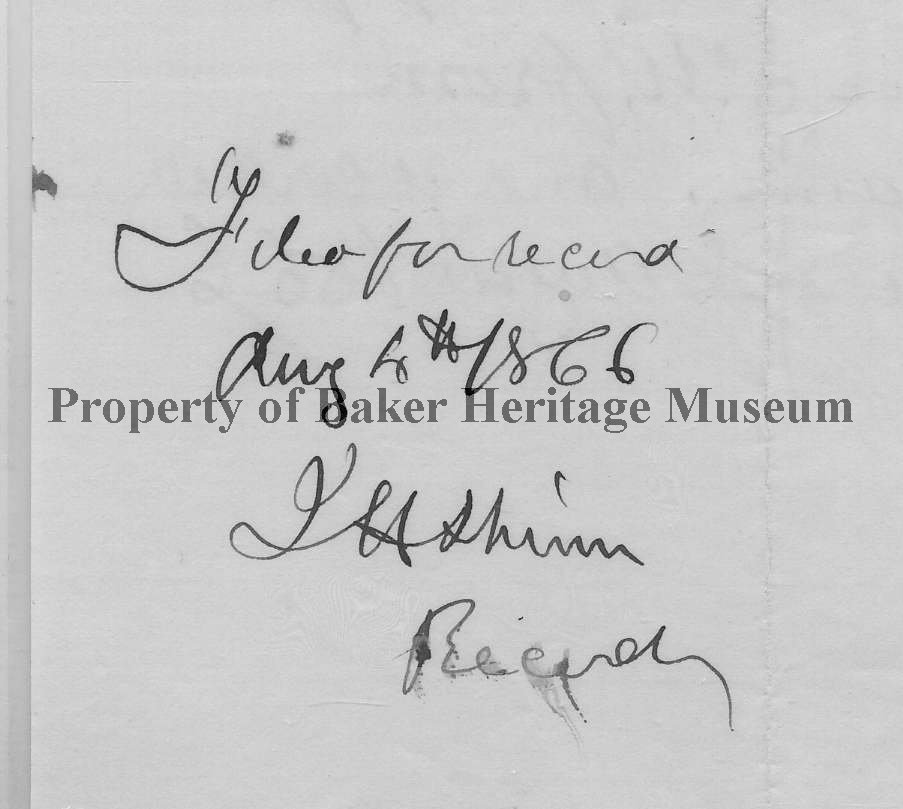 Filed for record
Aug 4th 1866
Property of Baker Heritage Museum
J H Shinn
Recorder